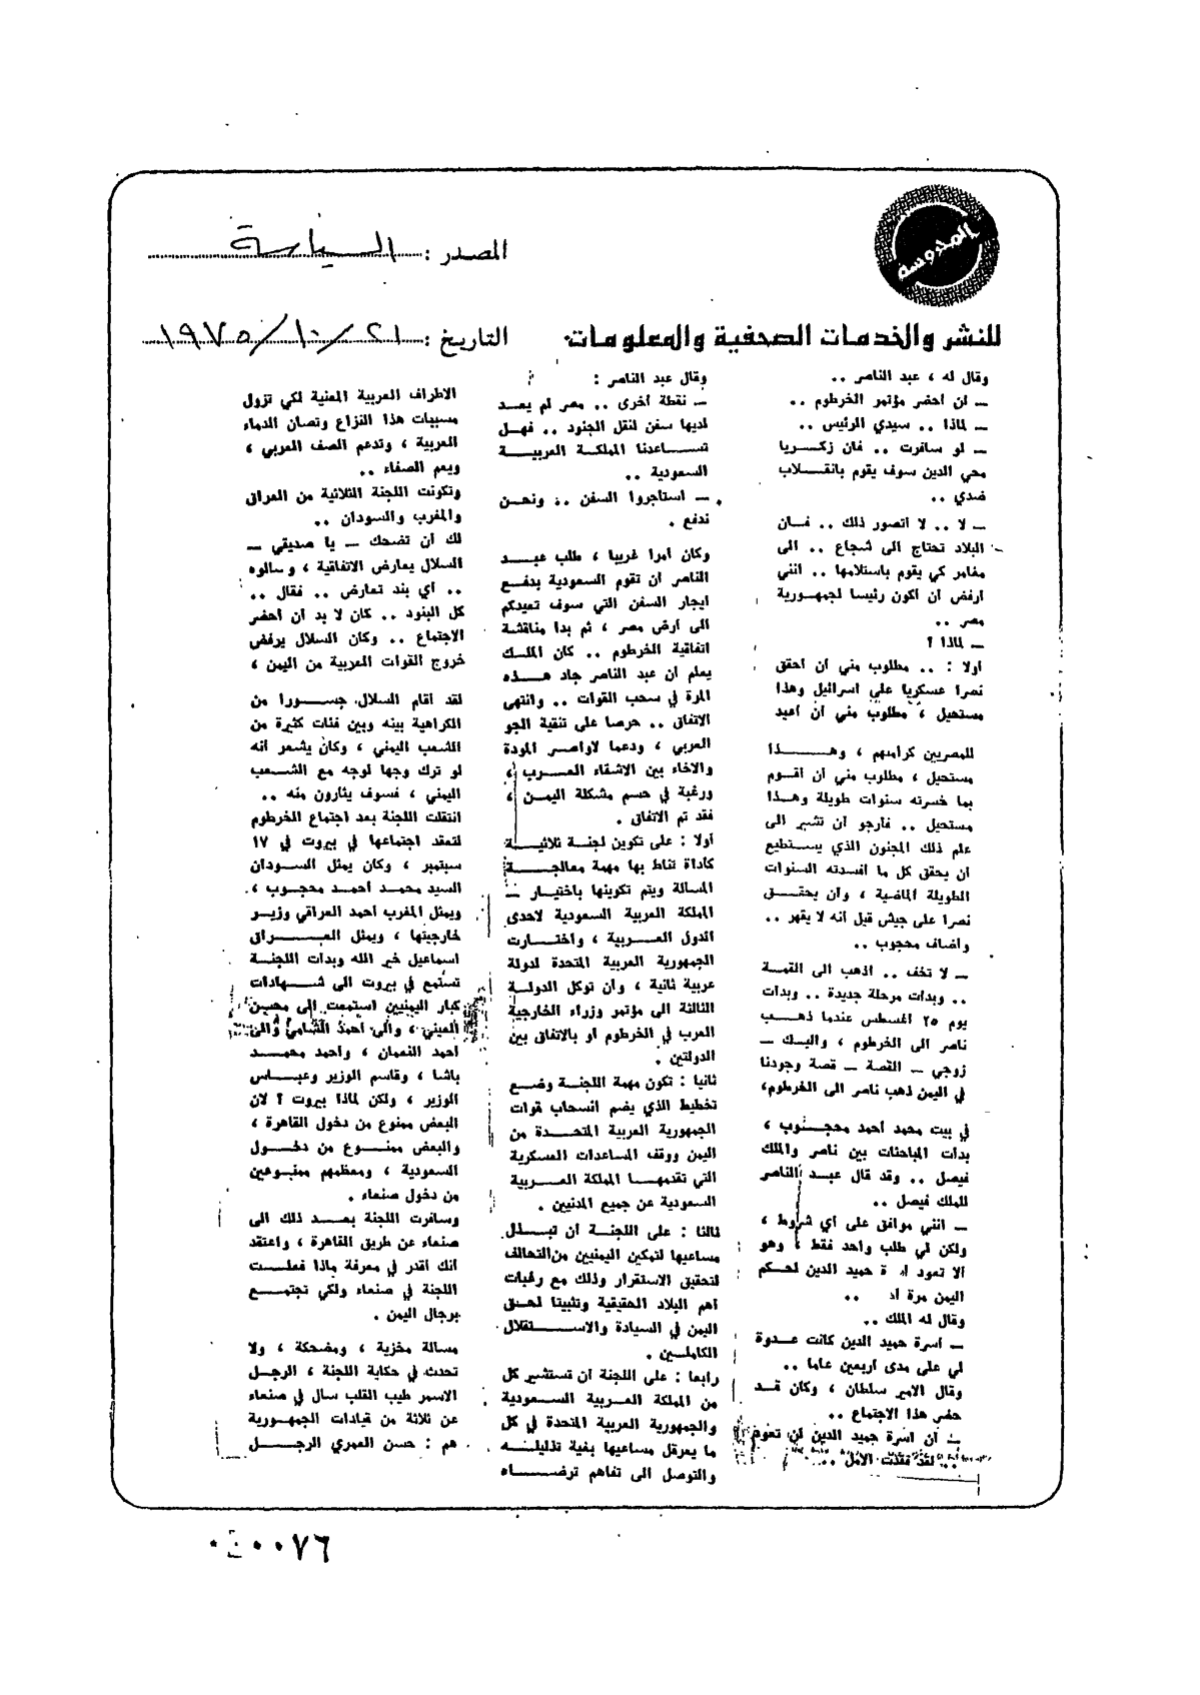 المدوسة
المصدر : السياسة
للنشر والخدمات الصحفية والمعلومات
التاريخ : ٢١/١٠/١٩٧٥
وقال له ، عبد الناصر ..
ــ لن احضر مؤتمر الخرطوم ..
ــ لماذا .. سيدي الرئيس ..
ــ لو سافرت .. فان زكريا
محي الدين سوف يقوم بانقلاب
ضدي ..
ــ لا .. لا اتصور ذلك .. فان
البلاد تحتاج الى شجاع .. الى
مغامر كي يقوم باستلامها .. انني
ارفض ان اكون رئيسا لجمهورية
مصر ..
ــ لماذا ؟
اولا : .. مطلوب مني ان احقق
نصرا عسكريا على اسرائيل وهذا
مستحيل ، مطلوب مني ان اعيد
للمصريين كرامتهم ، وهذا
مستحيل ، مطلوب مني ان اقوم
بما خسرته سنوات طويلة وهذا
مستحيل .. فارجو ان تشير الى
علم ذلك المجنون الذي يستطيع
ان يحقق كل ما افسدته السنوات
الطويلة الماضية ، وان يحقق
نصرا على جيش قيل انه لا يقهر ..
واضاف محجوب ..
ــ لا تخف .. اذهب الى القمة
.. وبدات مرحلة جديدة .. وبدات
يوم ٢٥ اغسطس عندما ذهب
ناصر الى الخرطوم ، واليك ــ
زوجي ــ القصة ــ قصة وجودنا
في اليمن ذهب ناصر الى الخرطوم،
في بيت محمد احمد محجوب ،
بدات المباحثات بين ناصر والملك
فيصل .. وقد قال عبد الناصر
للملك فيصل ..
ــ انني موافق على أي شروط ،
ولكن لي طلب واحد فقط ، وهو
الا تعود حميد الدين لحكم
اليمن مرة ..
وقال له الملك ..
ــ اسرة حميد الدين كانت عدوة
لي على مدى اربعين عاما ..
وقال الامير سلطان ، وكان قد
حضر هذا الاجتماع ..
ــ ان اسرة حميد الدين لن تعود
.. لقد فقدت الامل ..
وقال عبد الناصر :
ــ نقطة أخرى .. مصر لم يعد
لديها سفن لنقل الجنود .. فهل
تساعدنا المملكة العربية
السعودية ..
ــ استاجروا السفن .. ونحن
ندفع .
وكان امرا غريبا ، طلب عبد
الناصر ان تقوم السعودية بدفع
ايجار السفن التي سوف تعيدكم
الى ارض مصر ، ثم بدا مناقشة
اتفاقية الخرطوم .. كان الملك
يعلم ان عبد الناصر جاد هذه
المرة في سحب القوات .. وانتهى
الاتفاق .. حرصا على تنقية الجو
العربي ، ودعما لاواصر المودة
والاخاء بين الاشقاء العرب ،
ورغبة في حسم مشكلة اليمن ،
فقد تم الاتفاق .
أولا : على تكوين لجنة ثلاثية
كاداة تناط بها مهمة معالجة
المسالة ويتم تكوينها باختيار ــ
المملكة العربية السعودية لاحدى
الدول العربية ، واختارت
الجمهورية العربية المتحدة لدولة
عربية ثانية ، وأن توكل الدولة
الثالثة الى مؤتمر وزراء الخارجية
العرب في الخرطوم او بالاتفاق بين
الدولتين .
ثانيا : تكون مهمة اللجنة وضع
تخطيط الذي يضم انسحاب قوات
الجمهورية العربية المتحدة من
اليمن ووقف المساعدات العسكرية
التي تقدمها المملكة العربية
السعودية عن جميع المدنيين .
ثالثا : على اللجنة ان تبذل
مساعيها لتمكين اليمنيين من التحالف
لتحقيق الاستقرار وذلك مع رغبات
أهم البلاد الحقيقية وتثبيتا لحق
اليمن في السيادة والاستقلال
الكاملين .
رابعا : على اللجنة ان تستشير كل
من المملكة العربية السعودية
والجمهورية العربية المتحدة في كل
ما يعرقل مساعيها بغية تذليله
والتوصل الى تفاهم ترضاه
الاطراف العربية المعنية لكي تزول
مسببات هذا النزاع وتصان الدماء
العربية ، وتدعم الصف العربي ،
ويعم الصفاء ..
وتكونت اللجنة الثلاثية من العراق
والمغرب والسودان ..
لك ان تضحك ــ يا صديقي ــ
السلال يعارض الاتفاقية ، وسالوه
.. أي بند تعارض .. فقال ..
كل البنود .. كان لا بد ان احضر
الاجتماع .. وكان السلال يرفض
خروج القوات العربية من اليمن ،
لقد اقام السلال جسورا من
الكراهية بينه وبين فئات كثيرة من
الشعب اليمني ، وكان يشعر انه
لو ترك وجها لوجه مع الشعب
اليمني ، فسوف يثارون منه ..
انتقلت اللجنة بعد اجتماع الخرطوم
لتعقد اجتماعها في بيروت في ١٧
سبتمبر ، وكان يمثل السودان
السيد محمد احمد محجوب ،
ويمثل المغرب احمد العراقي وزير
خارجيتها ، ويمثل العراق
اسماعيل خير الله وبدات اللجنة
تستمع في بيروت الى شهادات
كبار اليمنيين استمعت الى محسن
العيني ، والى احمد الشامي والى
احمد النعمان ، واحمد محمد
باشا ، وقاسم الوزير وعباس
الوزير ، ولكن لماذا بيروت ؟ لان
البعض ممنوع من دخول القاهرة ،
والبعض ممنوع من دخول
السعودية ، ومعظمهم ممنوعين
من دخول صنعاء .
وسافرت اللجنة بعد ذلك الى
صنعاء عن طريق القاهرة ، واعتقد
انك اقدر في معرفة ماذا فعلت
اللجنة في صنعاء ولكي تجتمع
برجال اليمن .
مسالة مخزية ، ومضحكة ، ولا
تحدث في حكاية اللجنة ، الرجل
الاسمر طيب القلب سال في صنعاء
عن ثلاثة من قيادات الجمهورية
هم : حسن العمري الرجل